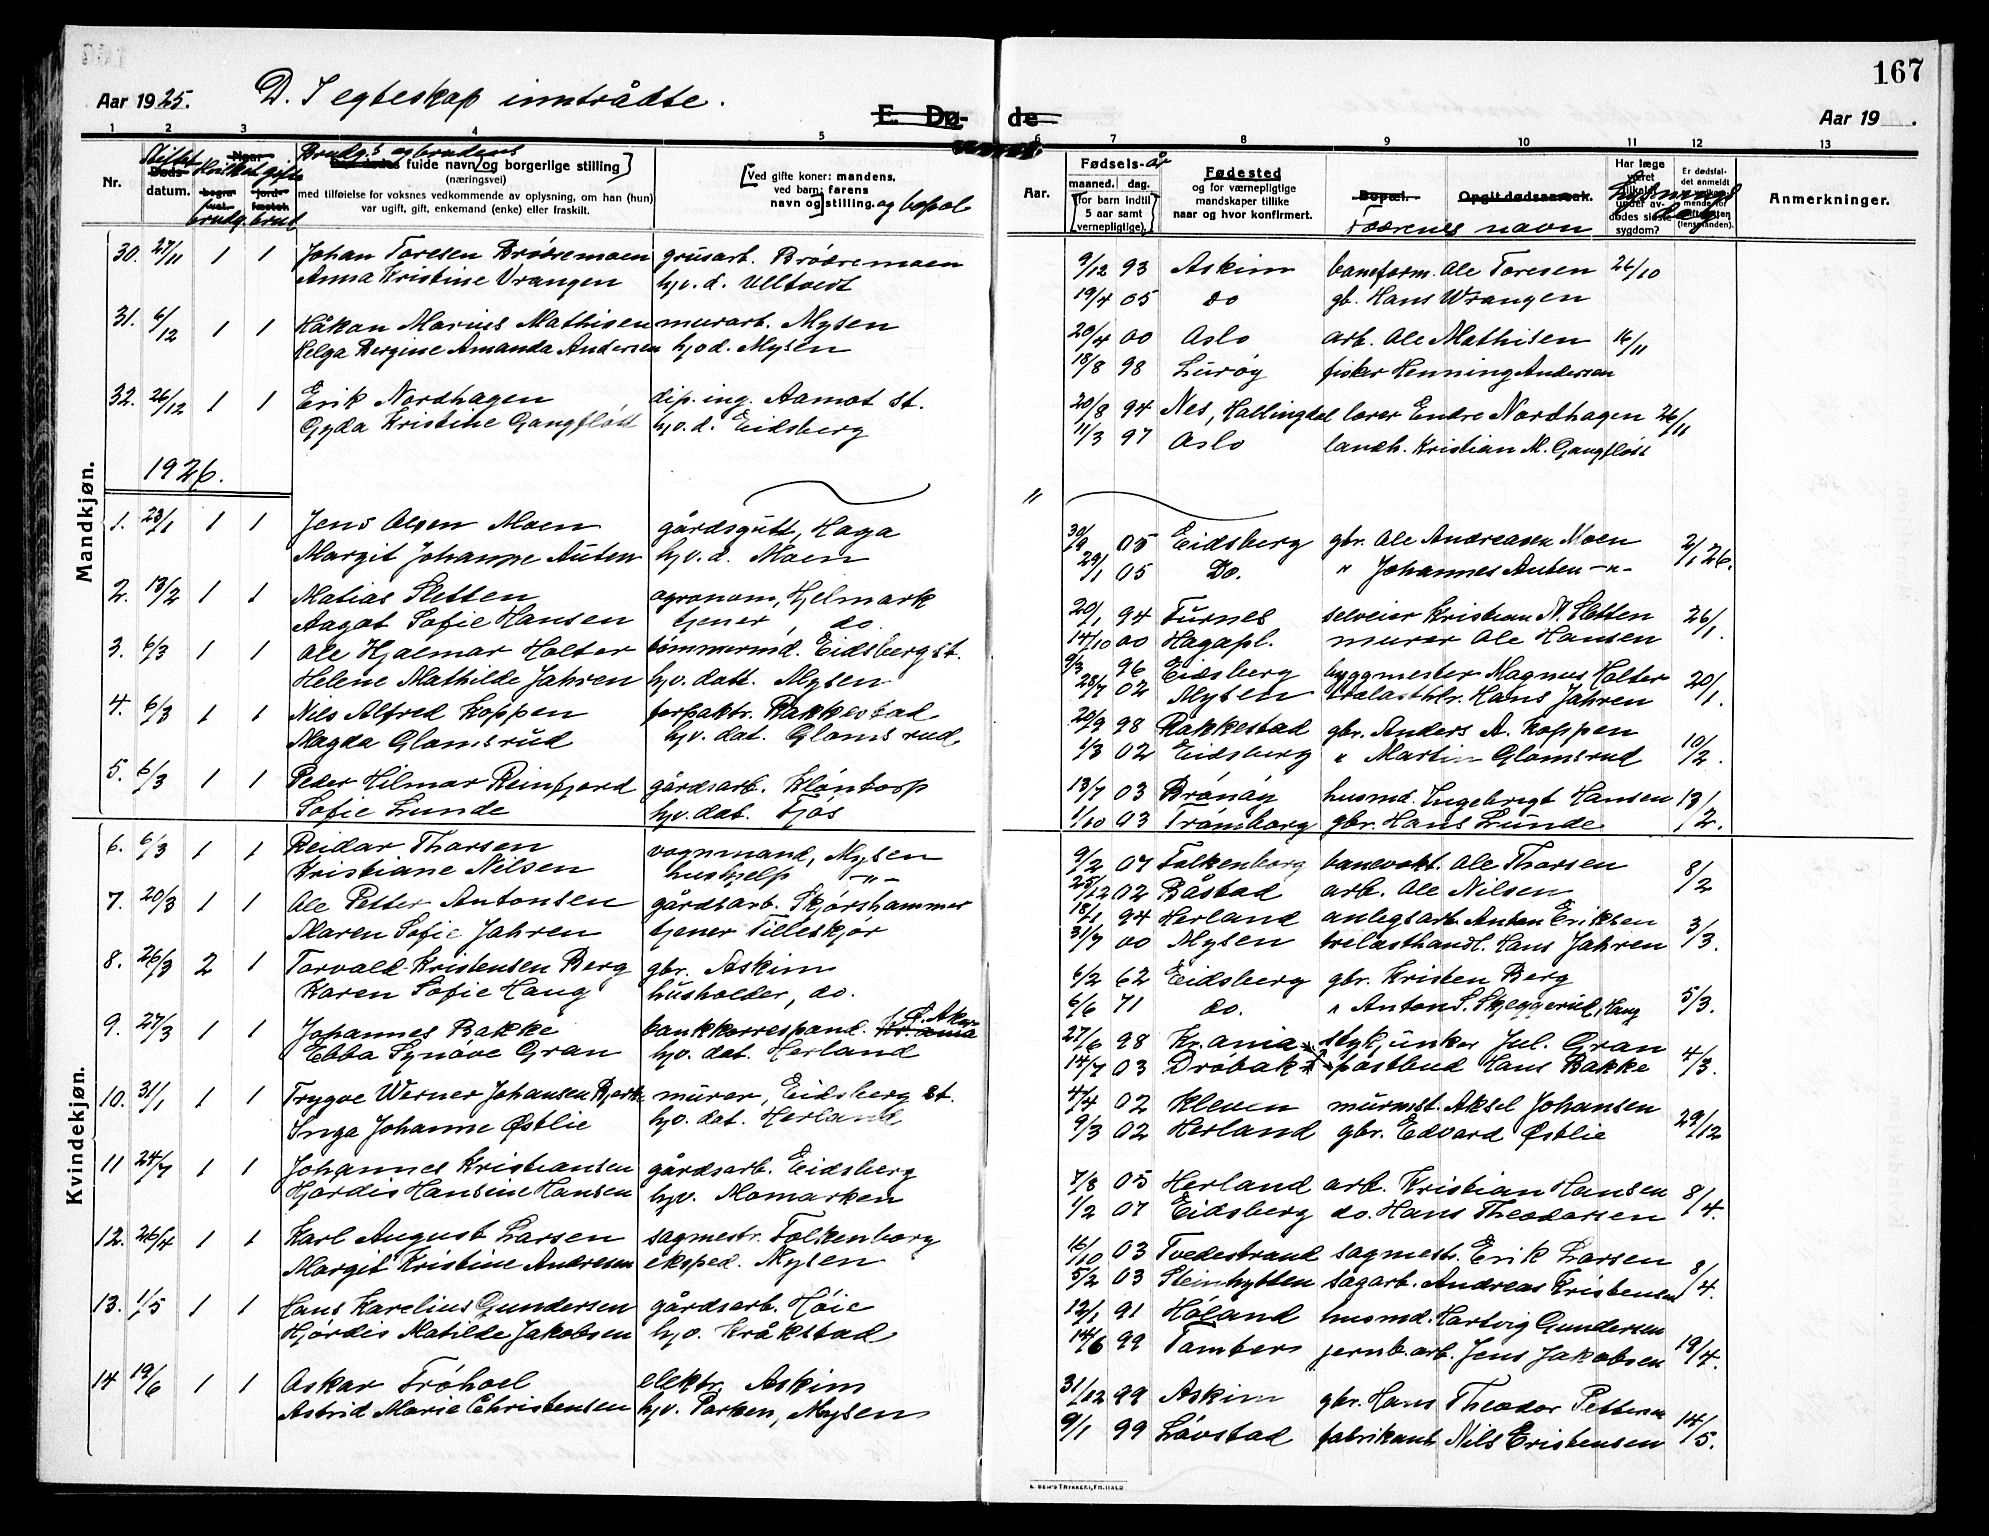 167
Aar 1925. D. I egteskap inntrådte.
E. Dø- de
Aar 19 .
1 2 3 4 5 6 7 8 9 10 11 12 13
Nr. Døds datum. Brudg.s og brudens fulde navn og borgerlige stilling
(næringsvei)
med tilføielse for voksnes vedkommende av oplysning, om han (hun)
var ugift, gift, enkemand (enke) eller fraskilt.
brudg. brud
Ved gifte koner: mandens,
ved barn: farens
navn og stilling. og bopæl
Aar.
Fødsels-år
maaned. dag.
(for barn indtil
5 aar samt
vernepligtige).
Fødested
og for værnepligtige
mandskaper tillike
naar og hvor konfirmert.
Bopæl. Opgit dødsaarsak.
Fædrenes navn
Har læge
været
tilkaldt
under av-
dødes sidste
sygdom?
Er dødsfal-
det anmeldt
(lensmanden).
Anmerkninger.
Mandkjøn.
30. 27/11 1 1 Johan Toresen Brøremoen grusarb. Brøremoen 9/12 93 Askim baneform. Ole Toresen 26/10
Anna Kristine Vrangen hj.v.d. Ulltvedt 19/4 05 do gb. Hans Wrangen
31. 6/12 1 1 Håkon Marius Mathisen murarb. Mysen 20/4 00 Oslo arb. Ole Mathisen 16/11
Helga Bergine Amanda Andersen hj.v.d. Mysen 18/8 98 Lurøy fisker Henning Andersen
32. 26/12 1 1 Erik Nordhagen dip. ing. Aamot st. 20/8 94 Nes, Hallingdal lærer Endre Nordhagen 26/11
Gyda Kristine Gangfløtt hj.v.d. Eidsberg 11/3 97 Oslo landh. Kristian M. Gangfløtt
1926. "
1. 23/1 1 1 Jens Olsen Moen gårdsgutt, Haga 30/9 05 Eidsberg gbr. Ole Andreasen Moen 2/1 26.
Margit Johanne Auten hj.v.d. Moen 29/1 05 Do. " Johannes Auten -"-
2. 13/2 1 1 Matias Sletten agronom, Hjelmark 20/1 94 Furnes selveier Kristian N. Sletten 26/1.
Aagot Sofie Hansen tjener, do. 14/10 00 Hagapl. murer Ole Hansen
3. 6/3 1 1 Ole Hjalmar Holter tømmermd. Eidsberg st. 9/3 96 Eidsberg byggmester Magnus Holter 20/1.
Helene Mathilde Jahren hj.v. datt. Mysen 28/7 02 Mysen trelasthlr. Hans Jahren
4. 6/3 1 1 Nils Alfred Koppen forpaktr. Rakkestad 20/9 98 Rakkestad gbr. Anders A. Koppen 10/2.
Magda Glomsrud hj.v. dat. Glomsrud 1/3 02 Eidsberg " Martin Glomsrud
5. 6/3 1 1 Peder Hilmar Reinfjord gårdsarb. Kløntorp 13/7 03 Brønøy husmd. Ingebrigt Hansen 13/2.
Sofie Lunde hj.v. dat. Fjøs 1/10 03 Trømborg gbr. Hans Lunde
Kvindekjøn.
6. 6/3 1 1 Reidar Thorsen vognmand, Mysen 9/2 07 Folkenborg banevokt. Ole Thorsen 8/2
Kristiane Nilsen hushjelp -"- 25/12 02 Båstad arb. Ole Nilsen
7. 20/3 1 1 Ole Petter Antonsen gårdsarb. Skjørshammer 18/1 94 Herland anlegsarb. Anton Eriksen 3/3.
Maren Sofie Jahren tjener Tilleskjør 31/7 00 Mysen trelasthandl. Hans Jahren
8. 26/3 2 1 Torvald Kristensen Berg gbr. Askim 6/2 62 Eidsberg gbr. Kristen Berg 5/3.
Karen Sofie Haug husholder, do. 6/6 71 do. " Anton S. Skjeggerud, Haug
9. 27/3 1 1 Johannes Bakke bankkorrespond. Kr.ania Ø. Aker 27/6 98 Kr.ania stykjunker Jul. Gran 4/3.
Ebba Synøve Gran hj.v. dat. Herland 14/7 03 Drøbak postbud Hans Bakke
10. 31/1 1 1 Trygve Werner Johansen Bjerke murer, Eidsberg st. 4/4 02 Kleven murmst. Aksel Johansen 29/12
Inga Johanne Østlie hj.v. dat. Herland 9/3 02 Herland gbr. Edvard Østlie
11 24/7 1 1 Johannes Kristiansen gårdsarb. Eidsberg 7/8 05 Herland arb. Kristian Hansen 8/4.
Hjørdis Hansine Hansen hj.v. Momarken 1/2 07 Eidsberg do. Hans Theodorsen
12. 26/4 1 1 Karl August Larsen sagmestr. Folkenborg 16/10 03 Tvedestrand sagmestr. Erik Larsen 8/4.
Margit Kristine Andresen eksped. Mysen 5/2 03 Steinhytten sagarb. Andreas Kristensen
13. 1/5 1 1 Hans Karelius Gundersen gårdsarb. Høie 12/1 91 Høland husmd. Hartvig Gundersen 19/4.
Hjørdis Matilde Jakobsen hj.v. Kråkstad 14/6 99 Tomter jernb.arb. Jens Jakobsen
14 19/6 1 1 Oskar Trøhoel elektr. Askim 31/12 99 Askim gbr. Hans Theodor Pettersen 14/5.
Astrid Marie Christensen hj.v. Parken, Mysen 9/1 99 Løvstad fabrikant Nils Cristensen